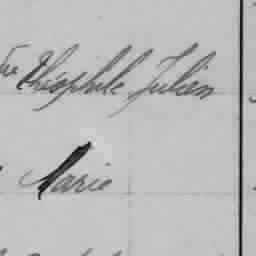 Théophile Julien
Marie